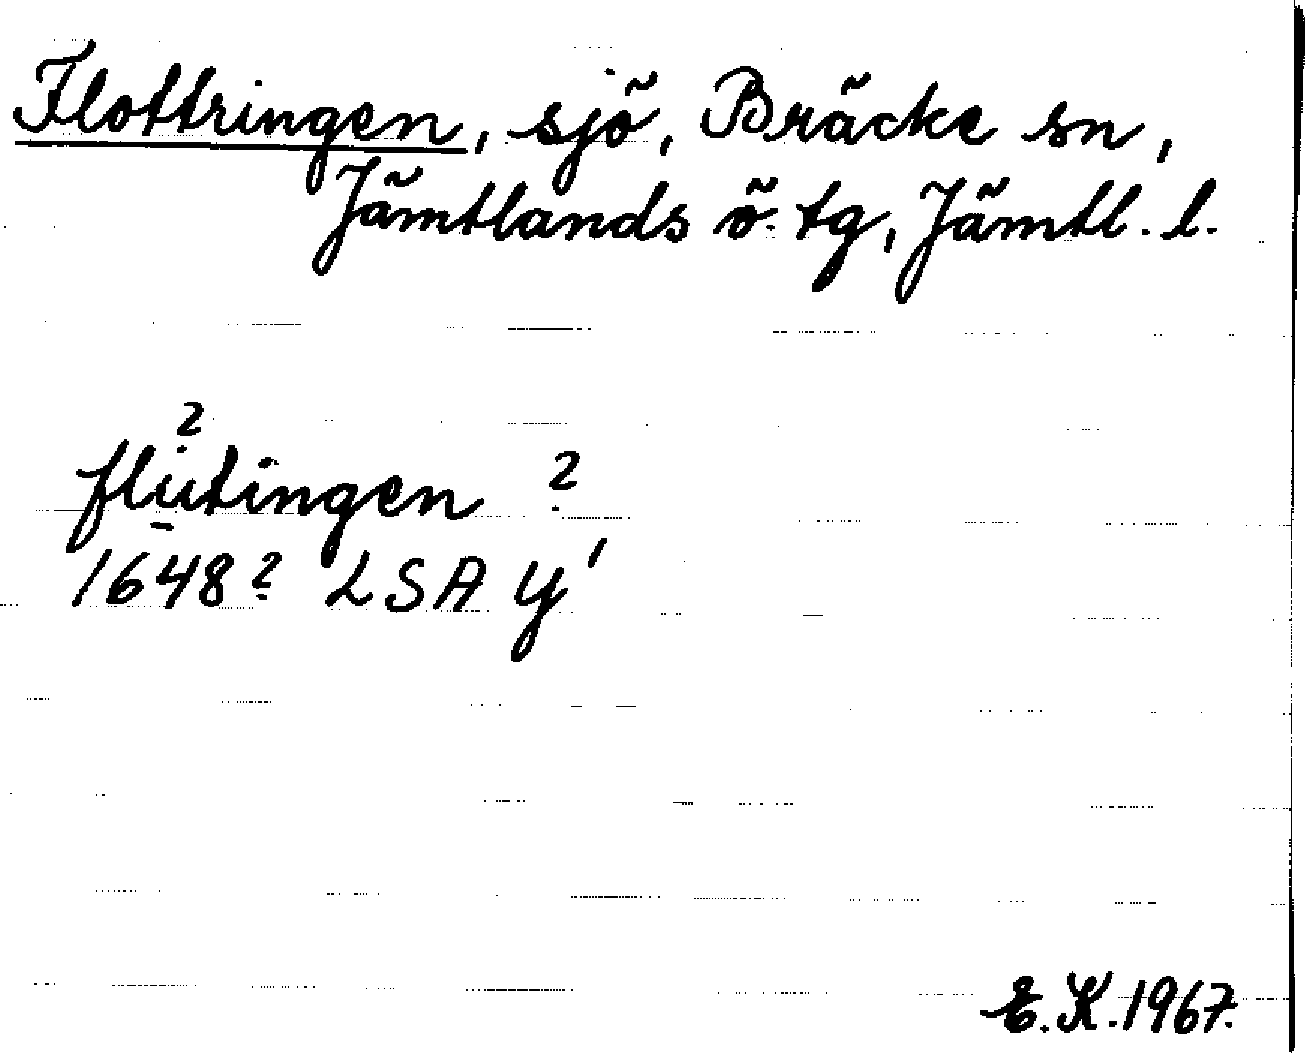 Flottringen, sjö, Bräcke sn,
Jämtlands ö. tg, Jämtl. l.
?
flutingen ?
1648? LSA Y'
E.K. 1967.